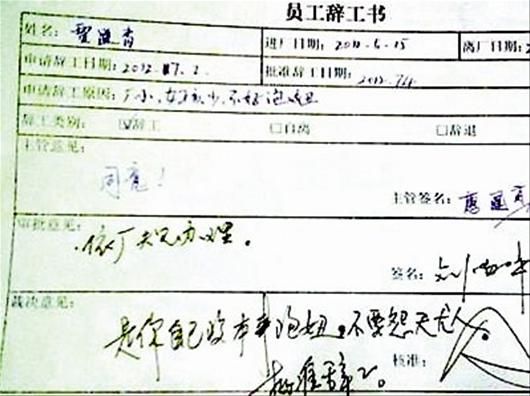 员工辞工书
姓名: 进厂日期: 2011.5.15 离厂日期: 2
申请辞工日期: 2012.7.2 批准辞工日期: 2012.7.4
申请辞工原因: 厂小,女孩少,不好泡妞
辞工类别: ☑辞工 □自离 □辞退
主管意见:
同意!
主管签名:
审批意见:
依厂规办理。
签名:
裁决意见:
是你自己没本事泡妞。不要怨天尤人。
核准:
批准辞工。